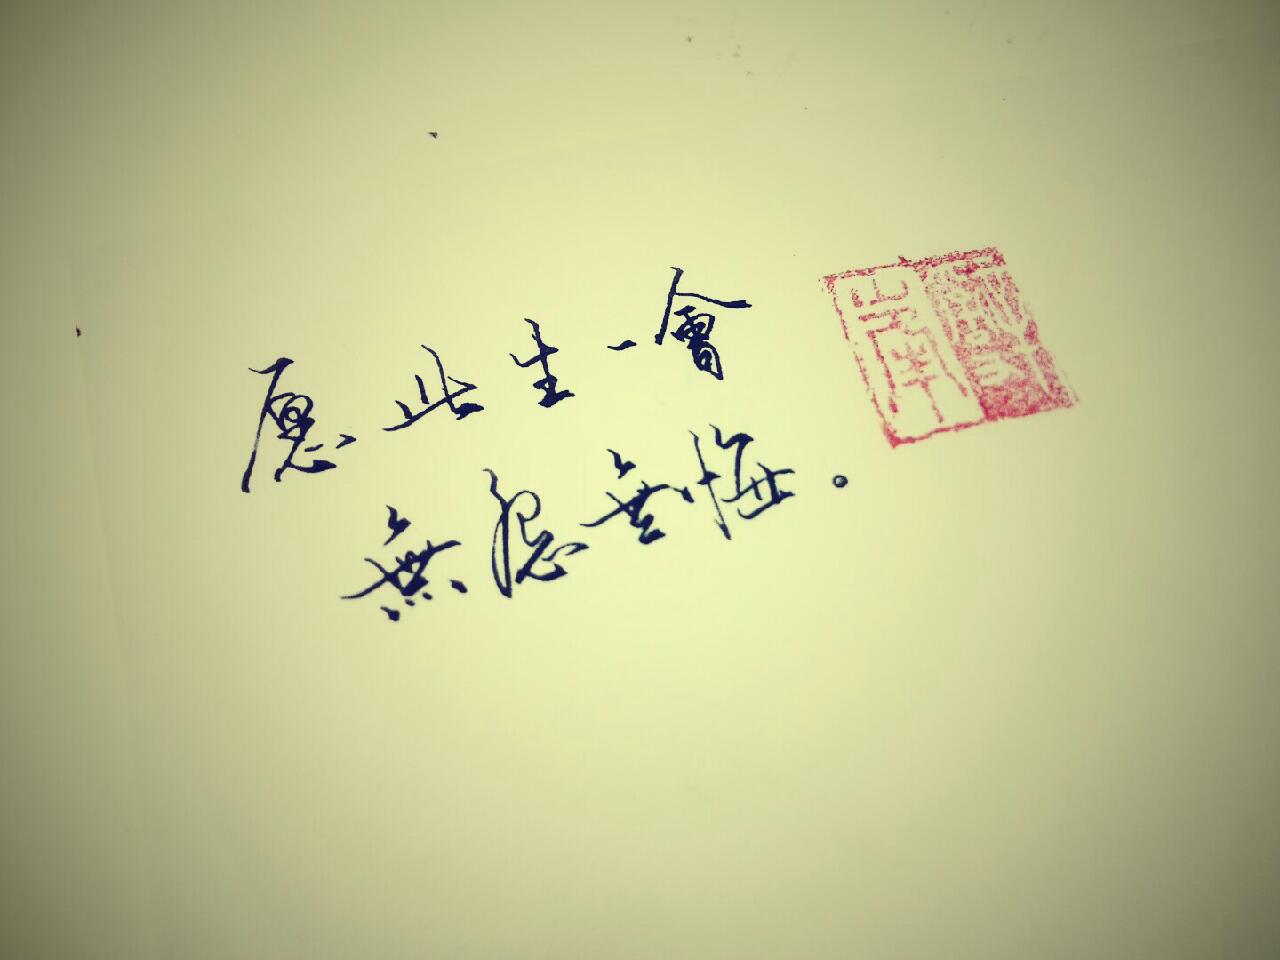 愿此生一會
無怨無悔。